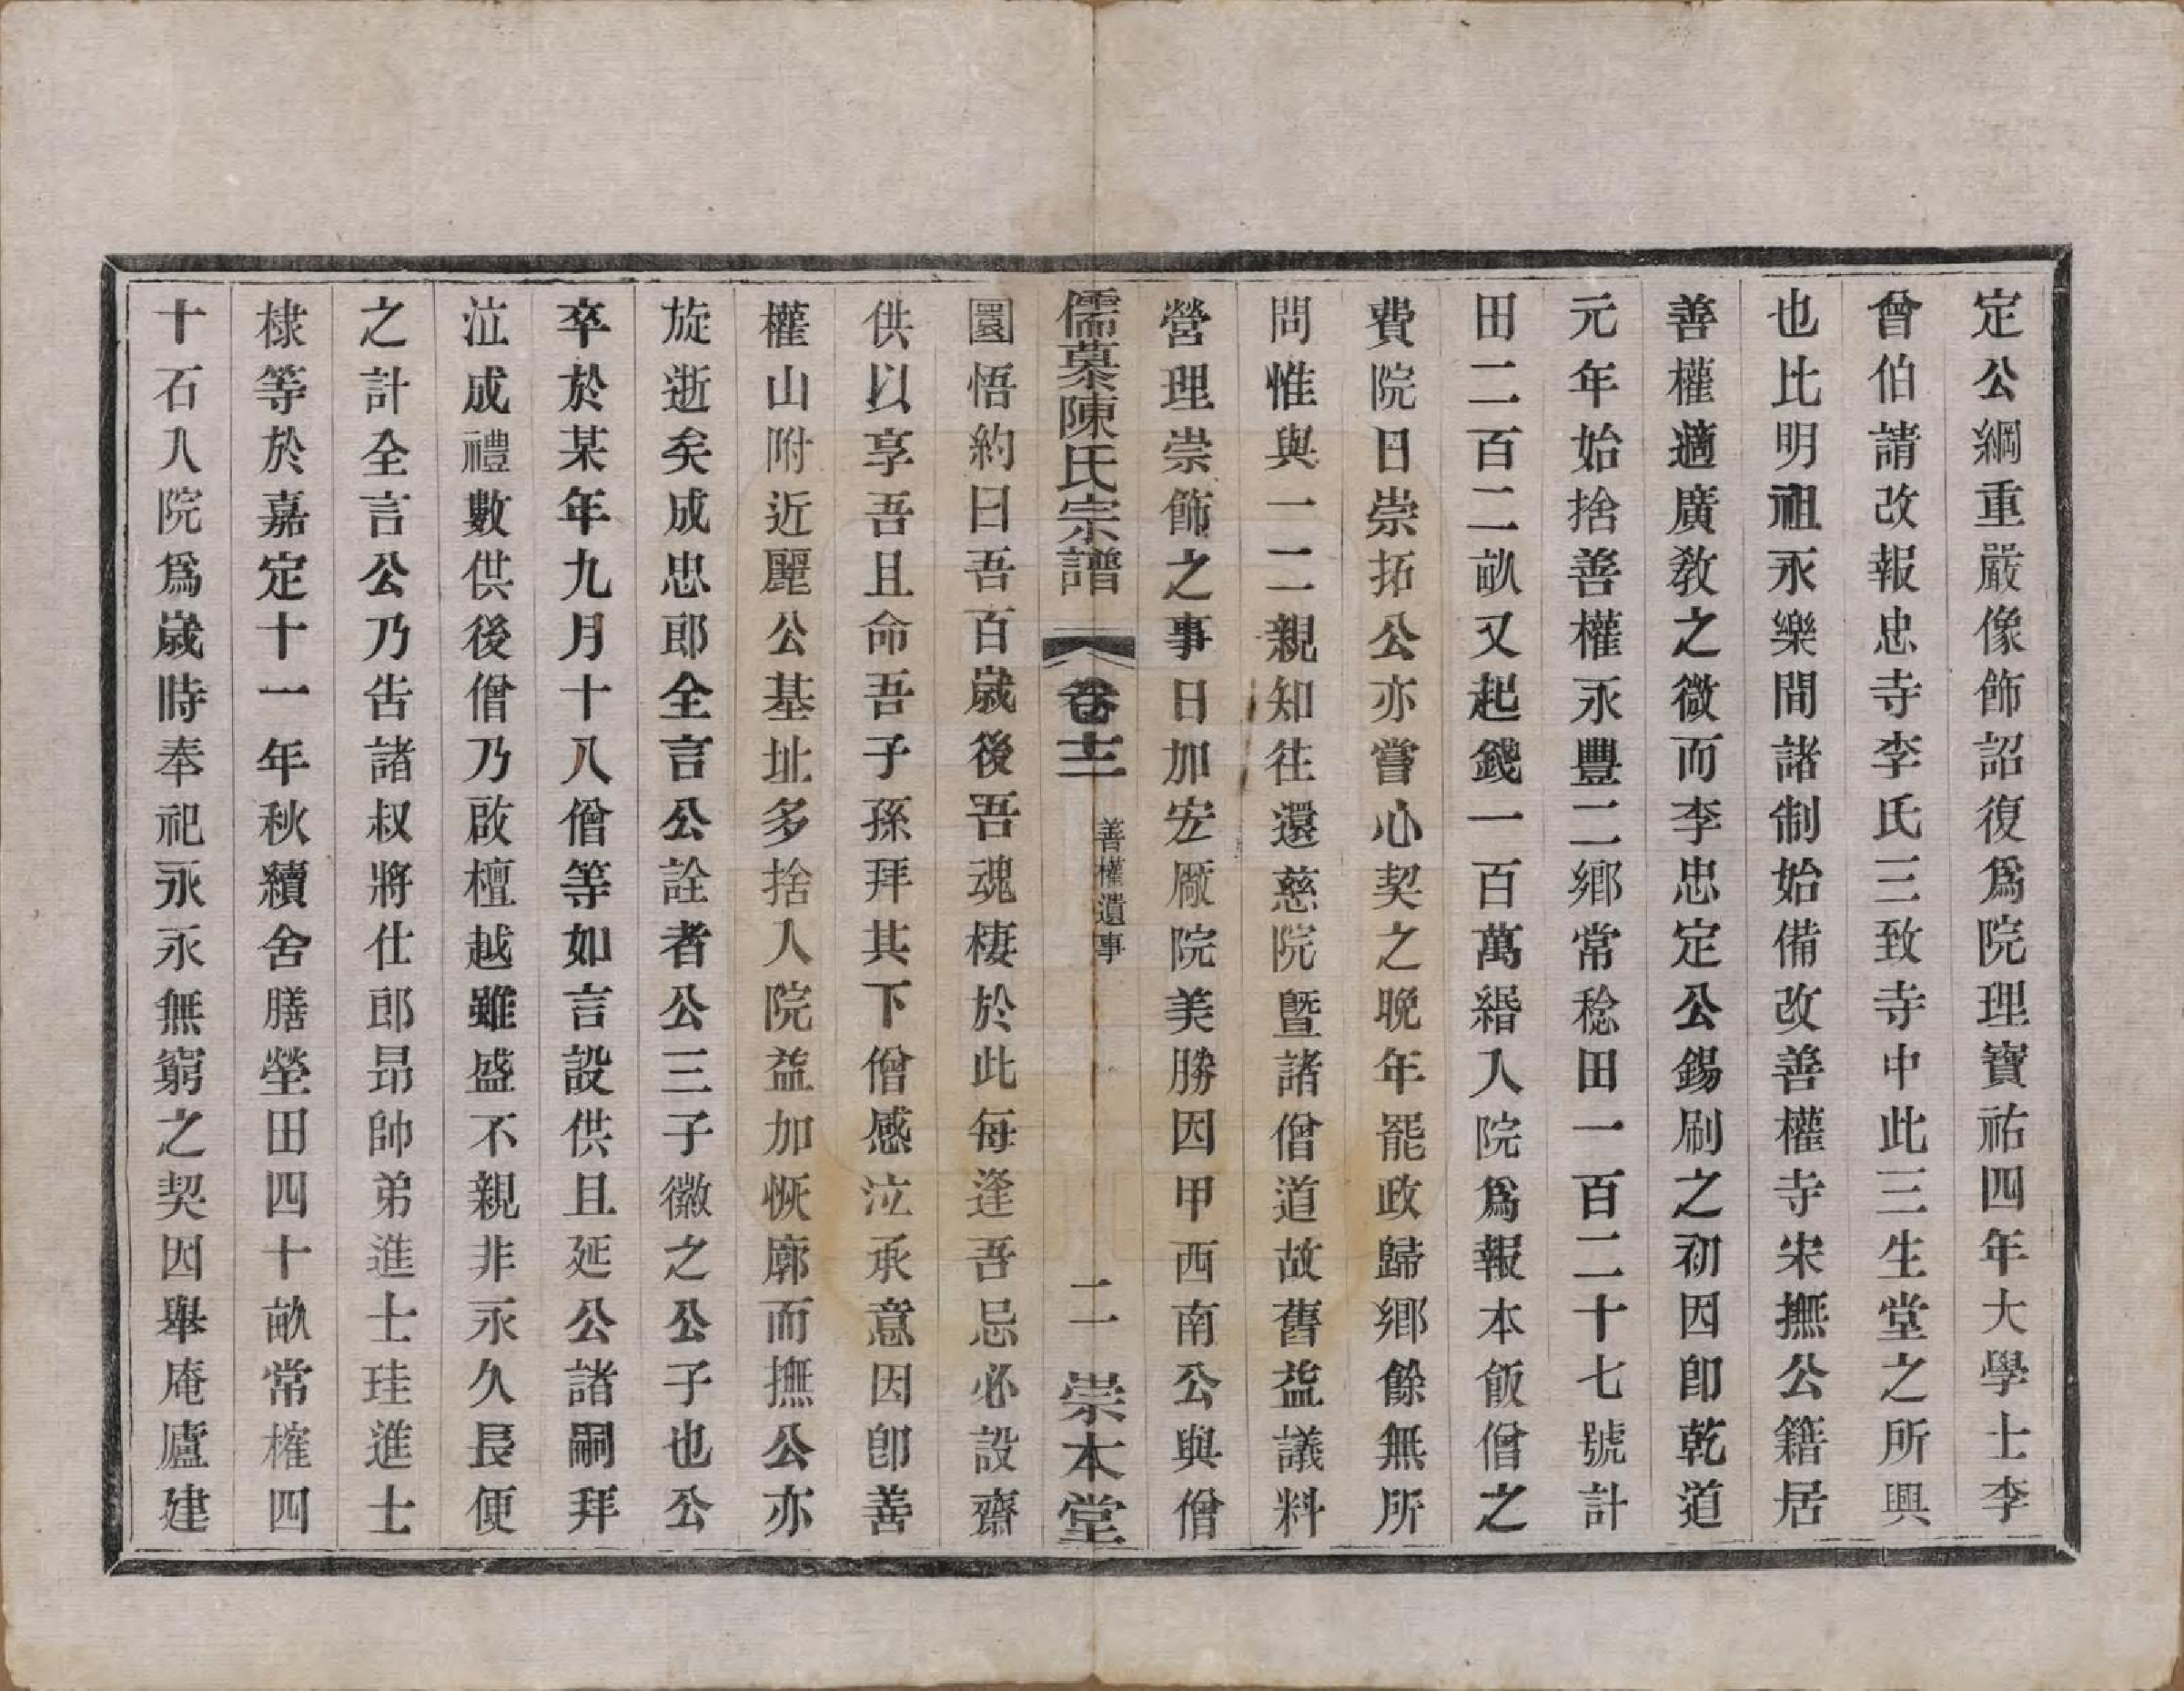 定公綱重嚴像飾詔復爲院理寶祐四年大學士李
曾伯請改報忠寺李氏三致寺中此三生堂之所興
也比明祖永樂間諸制始備改善權寺宋撫公籍居
善權適廣教之微而李忠定公錫刷之初因卽乾道
元年始捨善權永豐二鄉常稔田一百二十七號計
田二百二畝又起錢一百萬緡入院爲報本飯僧之
費院日崇拓公亦嘗心契之晚年罷政歸鄉餘無所
問惟與一二親知往還慈院曁諸僧道故舊益議料
營理崇飾之事日加宏厰院美勝因甲西南公與僧
儒慕陳氏宗譜 卷十二 善權遺事 二 崇本堂
圜悟約曰吾百歲後吾魂棲於此每逢吾忌必設齋
供以享吾且命吾子孫拜其下僧感泣承意因卽善
權山附近麗公基址多捨入院益加恢廓而撫公亦
旋逝矣成忠郎全言公詮者公三子徽之公子也公
卒於某年九月十八僧等如言設供且延公諸嗣拜
泣成禮數供後僧乃啟檀越雖盛不親非永久長便
之計全言公乃吿諸叔將仕郎昻帥弟進士珪進士
棣等於嘉定十一年秋續舍膳塋田四十畝常㩁四
十石入院爲歲時奉祀永永無窮之契因舉庵廬建